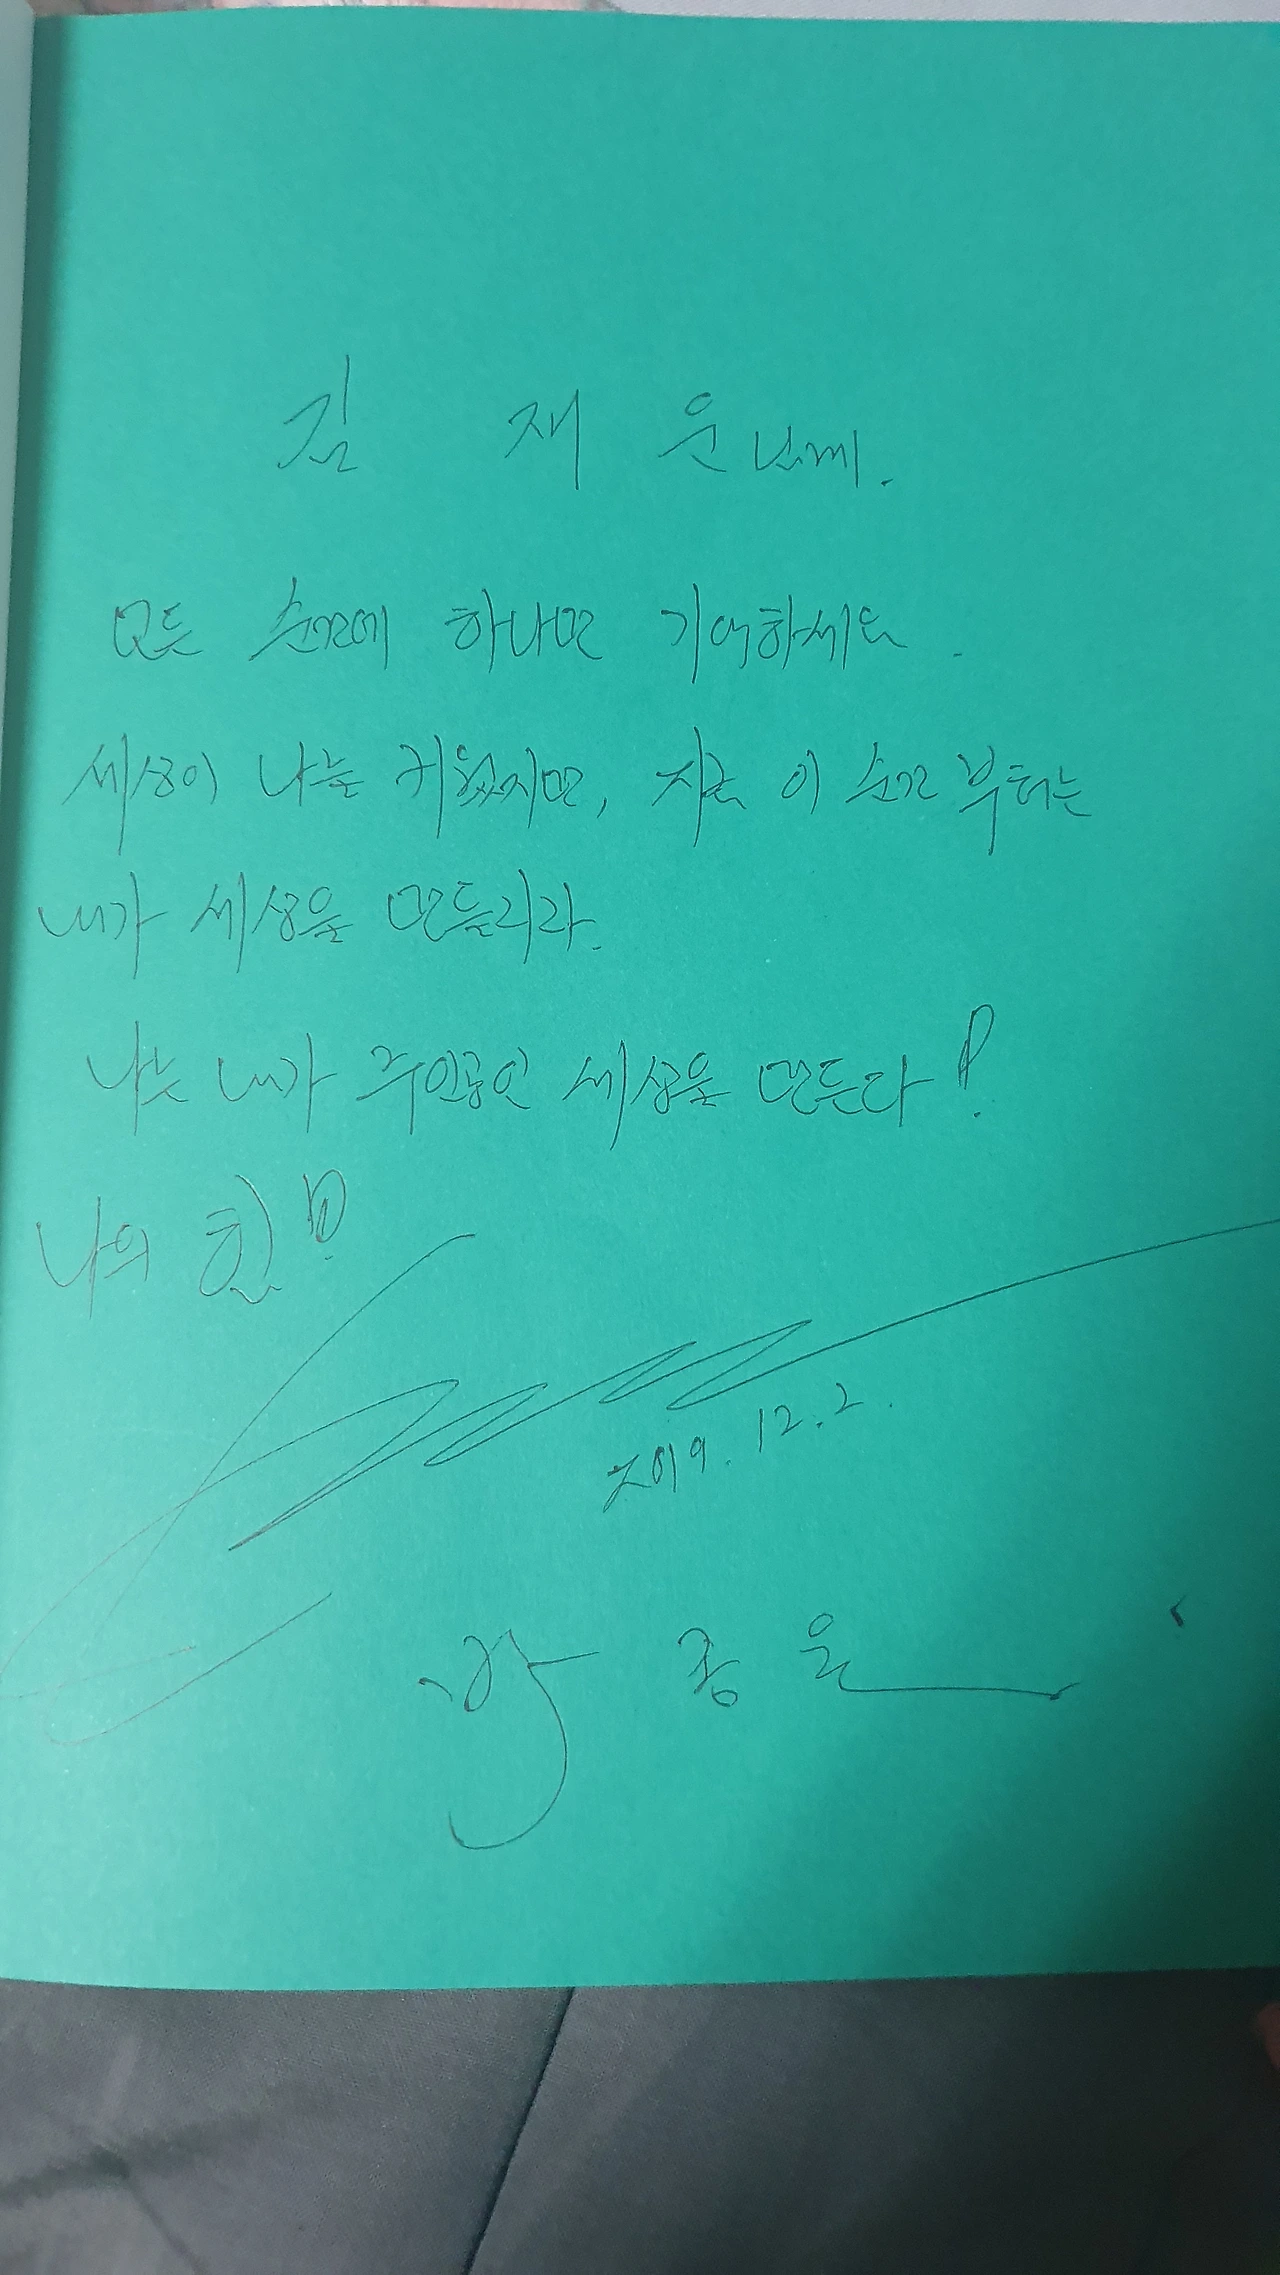 김 재 윤님께.
모든 순간에 하나만 기억하세요.
세상이 나를 키웠지만, 지금 이 순간 부터는
내가 세상을 만들리라.
나는 내가 주인공인 세상을 만든다!
나의 힘!!
2019. 12. 2.
박 종 윤